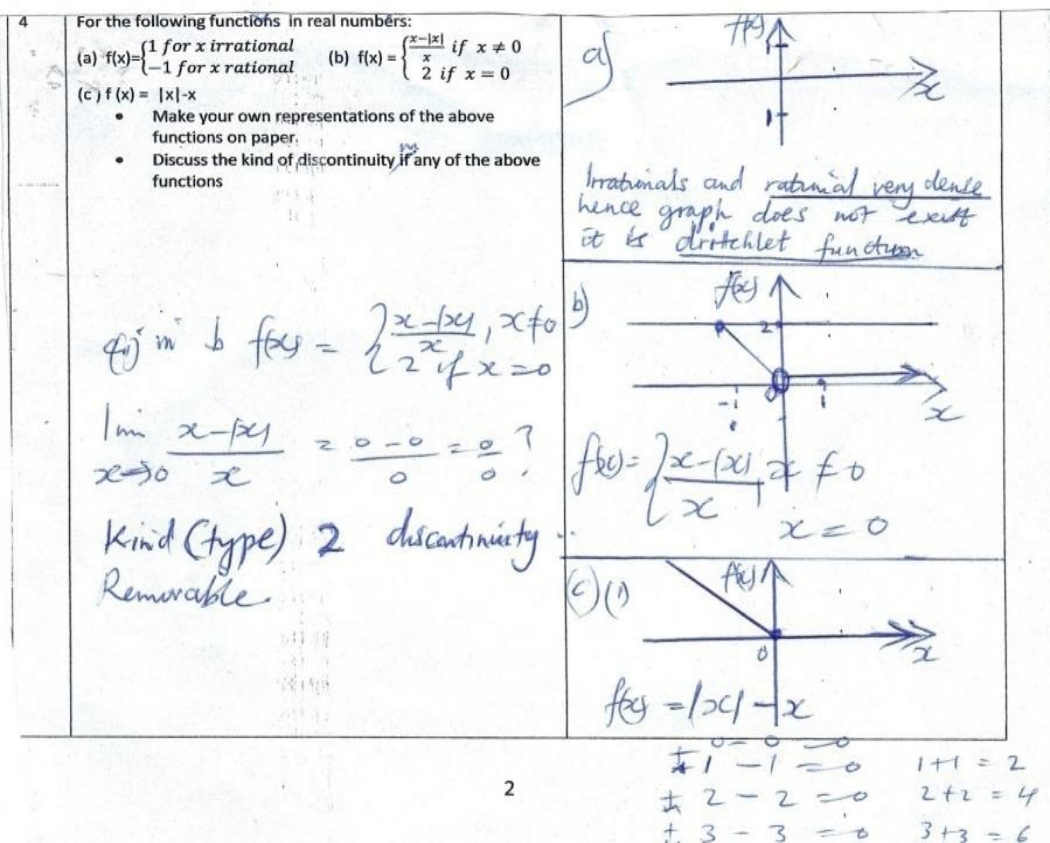 4
For the following functions in real numbers:
(a) f(x)={1 for x irrational
{-1 for x rational
(b) f(x) = {x-|x|/x if x ≠ 0
{2 if x = 0
(c) f (x) = |x|-x
• Make your own representations of the above
functions on paper.
• Discuss the kind of discontinuity if any of the above
functions
in b f(x) = {x-|x|/x, x≠0
{2 if x=0
lim x→0 x-|x|/x = 0-0/0 = 0/0 ?
Kind (type) 2 discontinuity
Removable.
a)
f(x)
1
x
1
Irrationals and rational very dense
hence graph does not exist
it is dritchlet function
b)
f(x)
2
-1 0 1
x
f(x)= {x-|x|/x, x ≠ 0
x = 0
(c) (1)
f(x)
0
x
f(x) = |x| - x
0 - 0 = 0
± 1 - 1 = 0 1+1 = 2
± 2 - 2 = 0 2+2 = 4
± 3 - 3 = 0 3+3 = 6
2